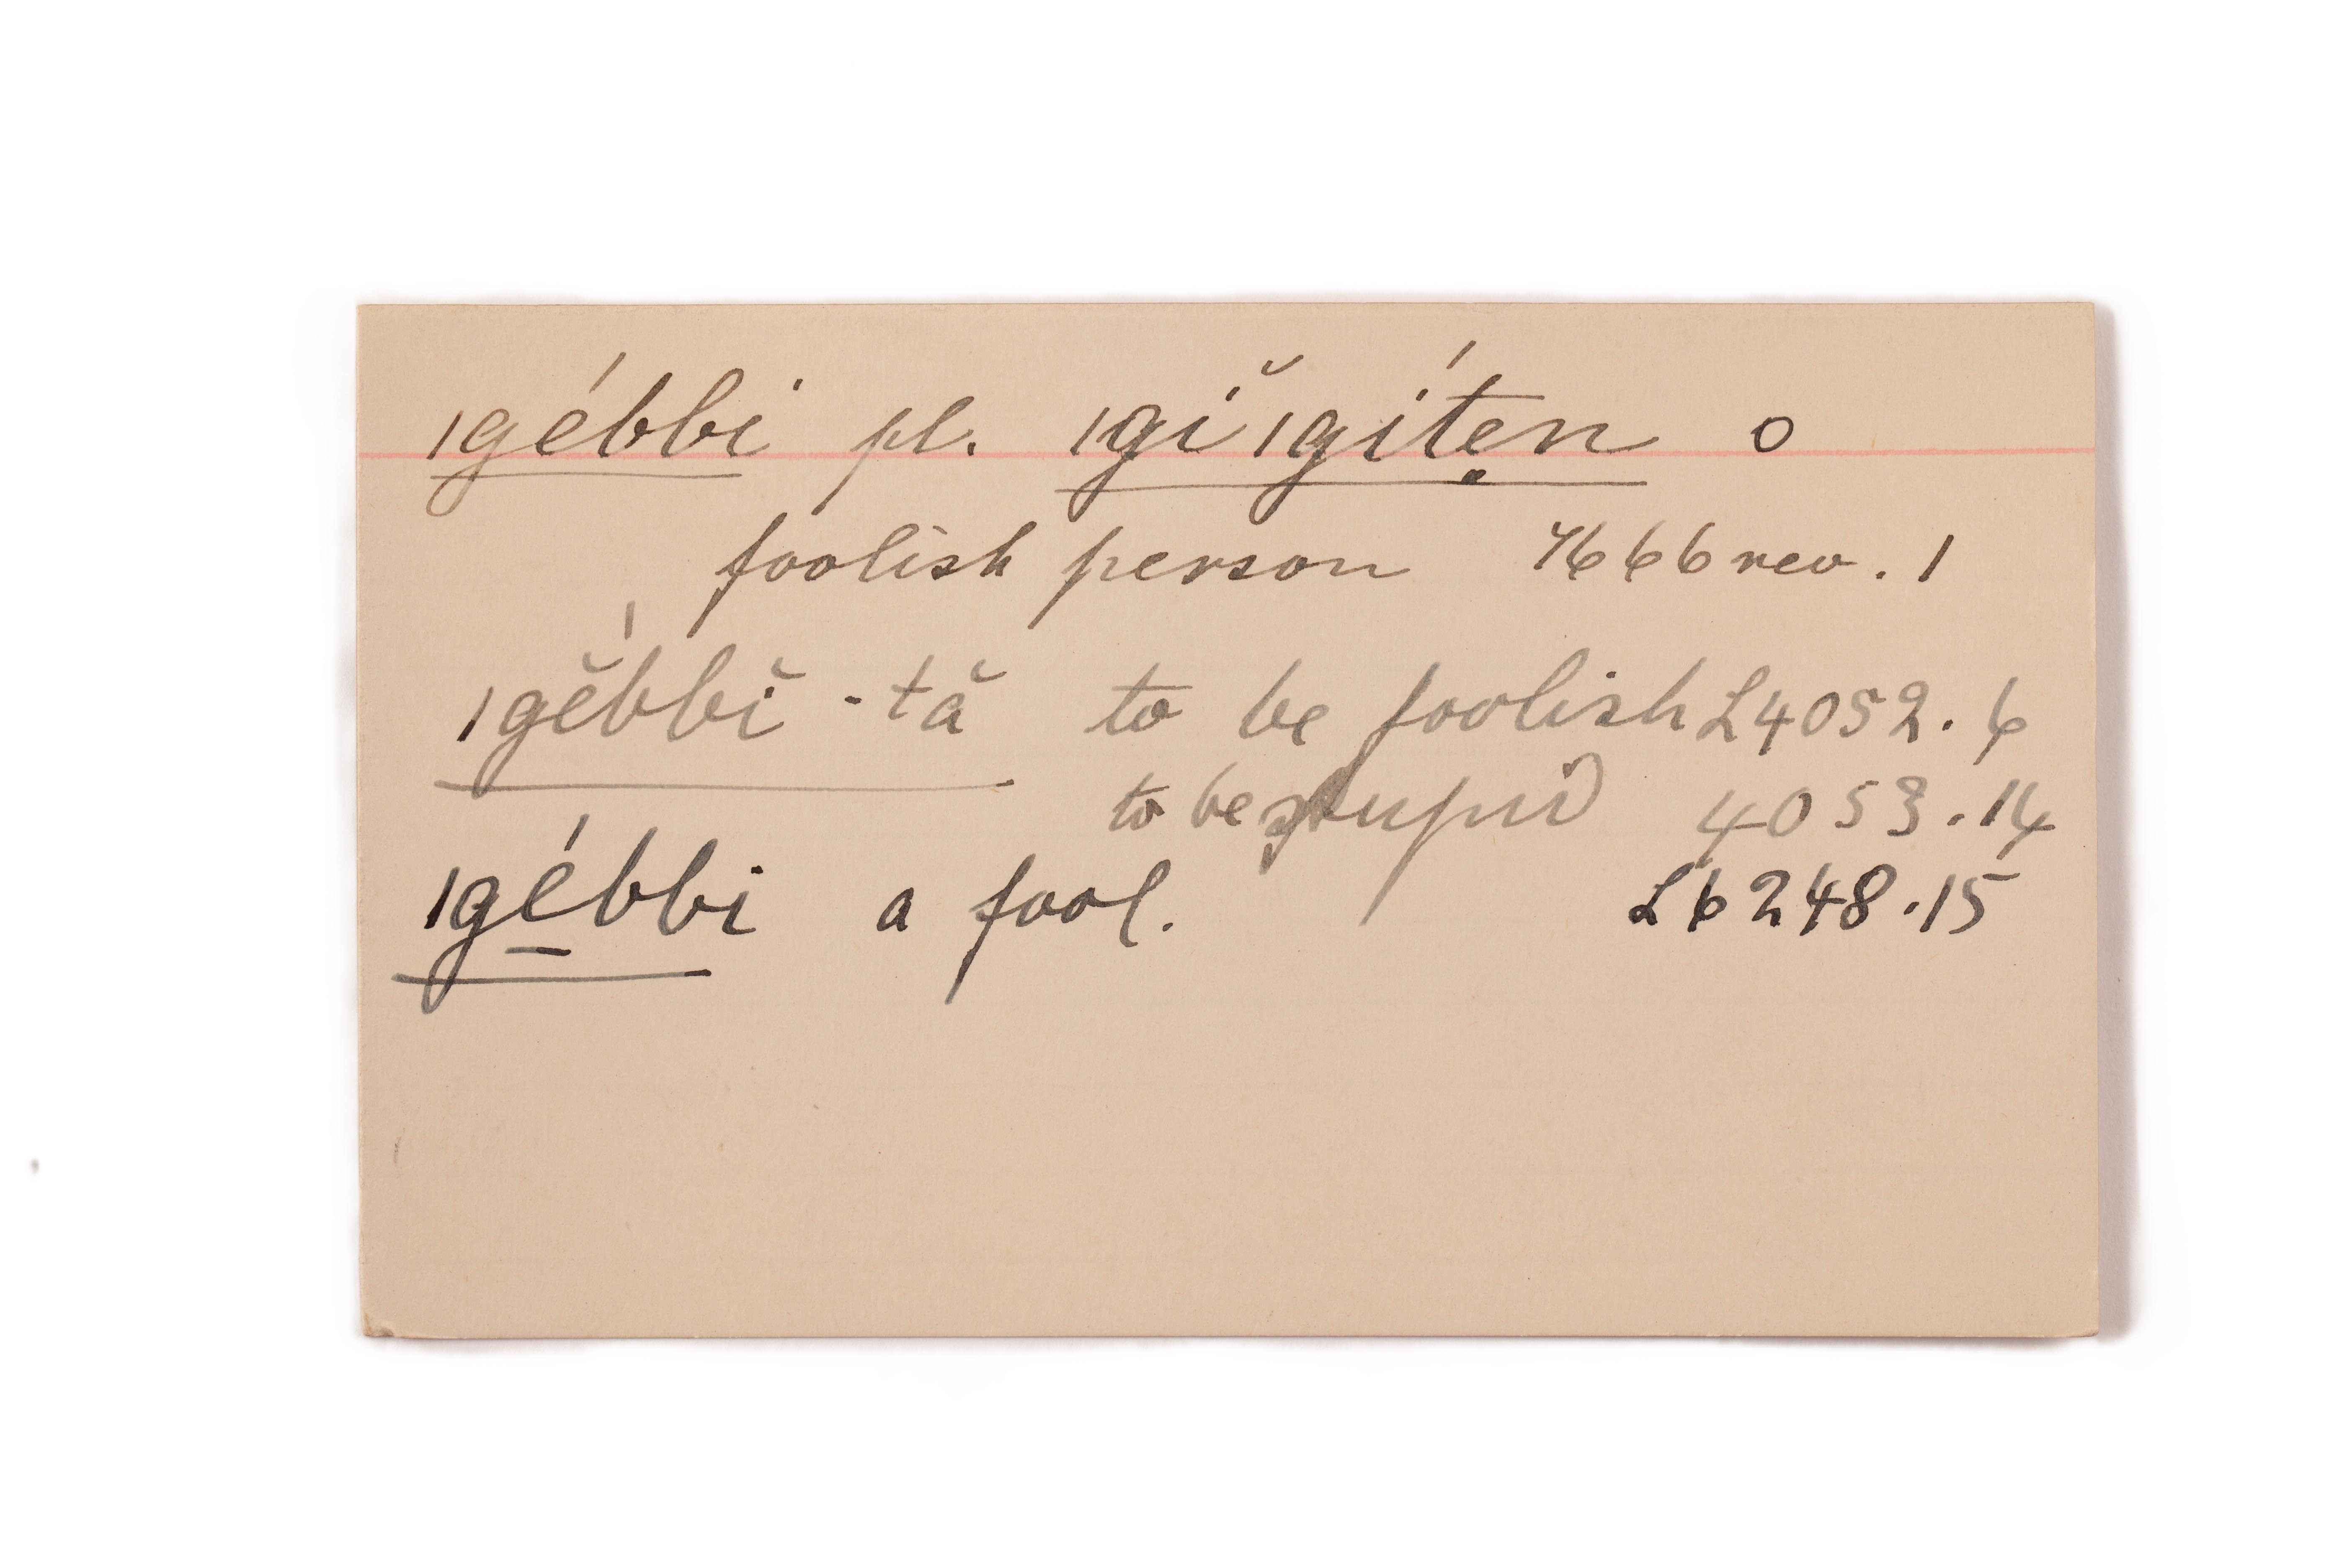 ǀgébbi pl. ǀgĭ ǀgítẹn o
foolish person 7666 rev. 1
ǀgĕ́bbĭ -tă to be foolish L4052. 6
to be stupid 4053.14
ǀgé̱bbi a fool. L6248.15